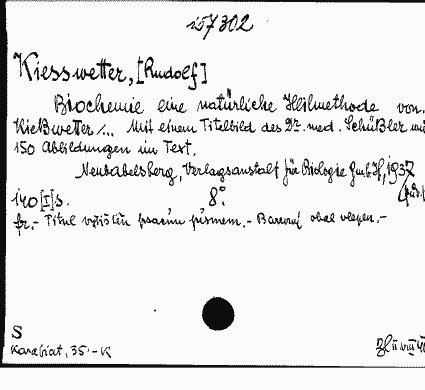 157302
Kiesswetter, [Rudolf]
Biochemie eine natürliche Heilmethode von
Kießwetter/... Mit einem Titelbild des Dr. med. Schüßler und
150 Abbildungen im Text.
Neubabelsberg, Verlagsanstalt für Biologie G.m.b.H., 1937
140 [I] s. 8°
fr.- Titul vytištěn psacím písmem.- Barevný obal vlepen.-
S
Karafiat, 35.- K